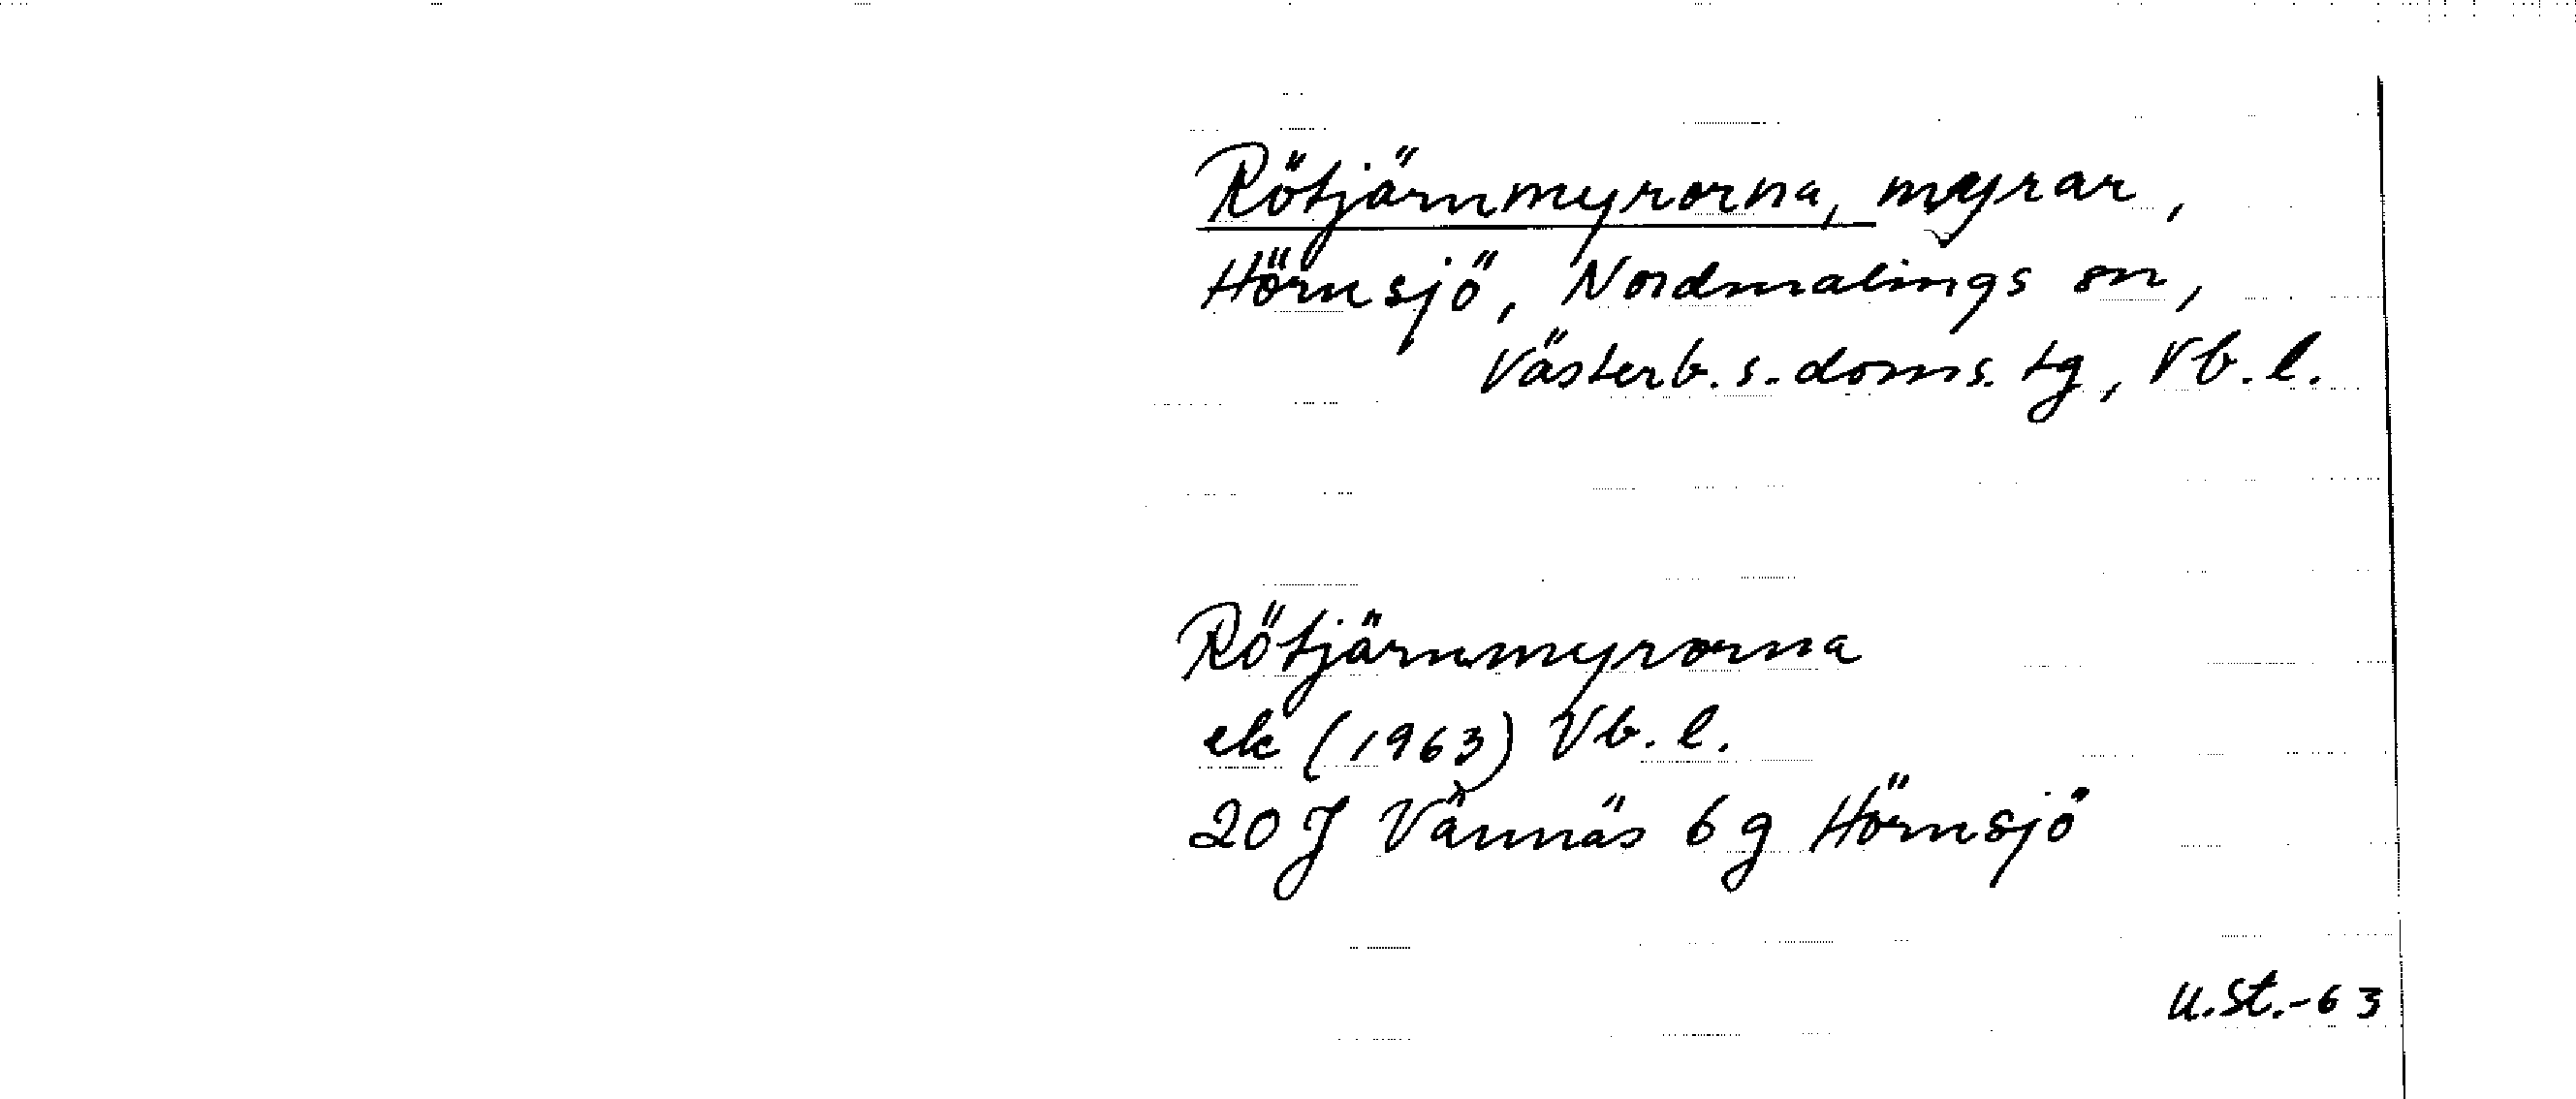 Rötjärnmyrorna, myrar,
Hörnsjö, Nordmalings sn,
Västerb. s. doms. tg, Vb. l.
Rötjärnmyrorna
ek (1963) Vb. l.
20 J Vännäs 6 g Hörnsjö
U.St.-63